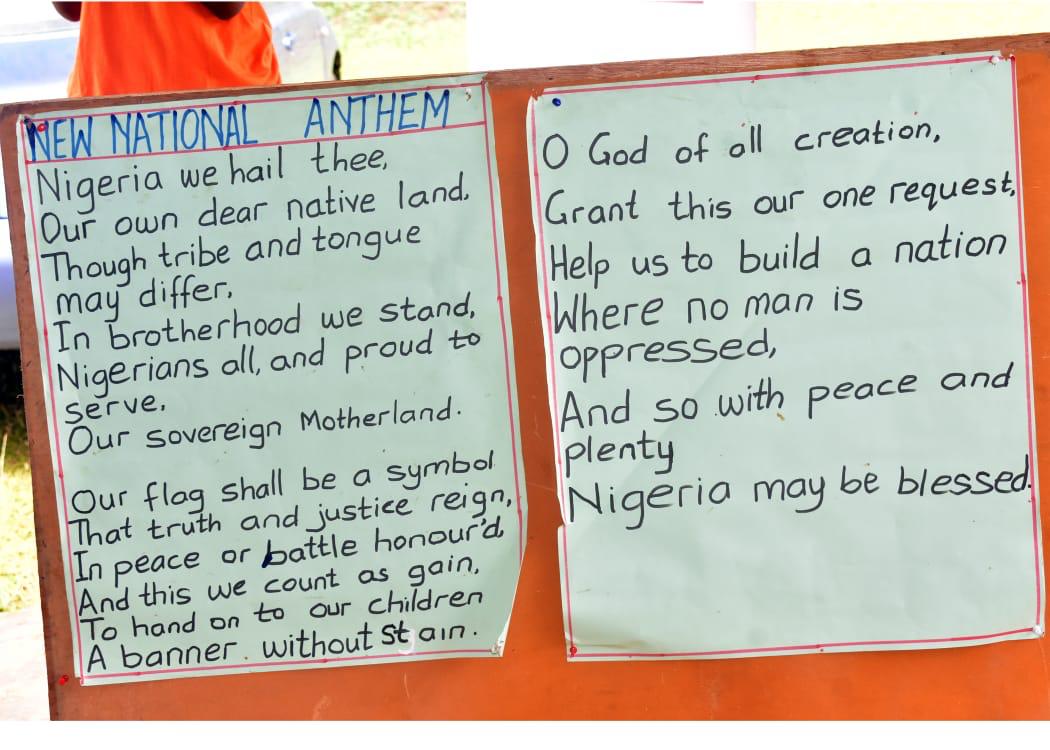 NEW NATIONAL ANTHEM
Nigeria we hail thee,
Our own dear native land.
Though tribe and tongue
may differ,
In brotherhood we stand,
Nigerians all, and proud to
serve.
Our sovereign Motherland.
Our flag shall be a symbol
That truth and justice reign,
In peace or battle honour'd,
And this we count as gain,
To hand on to our children
A banner without stain.
O God of all creation,
Grant this our one request,
Help us to build a nation
Where no man is
oppressed,
And so with peace and
plenty
Nigeria may be blessed.